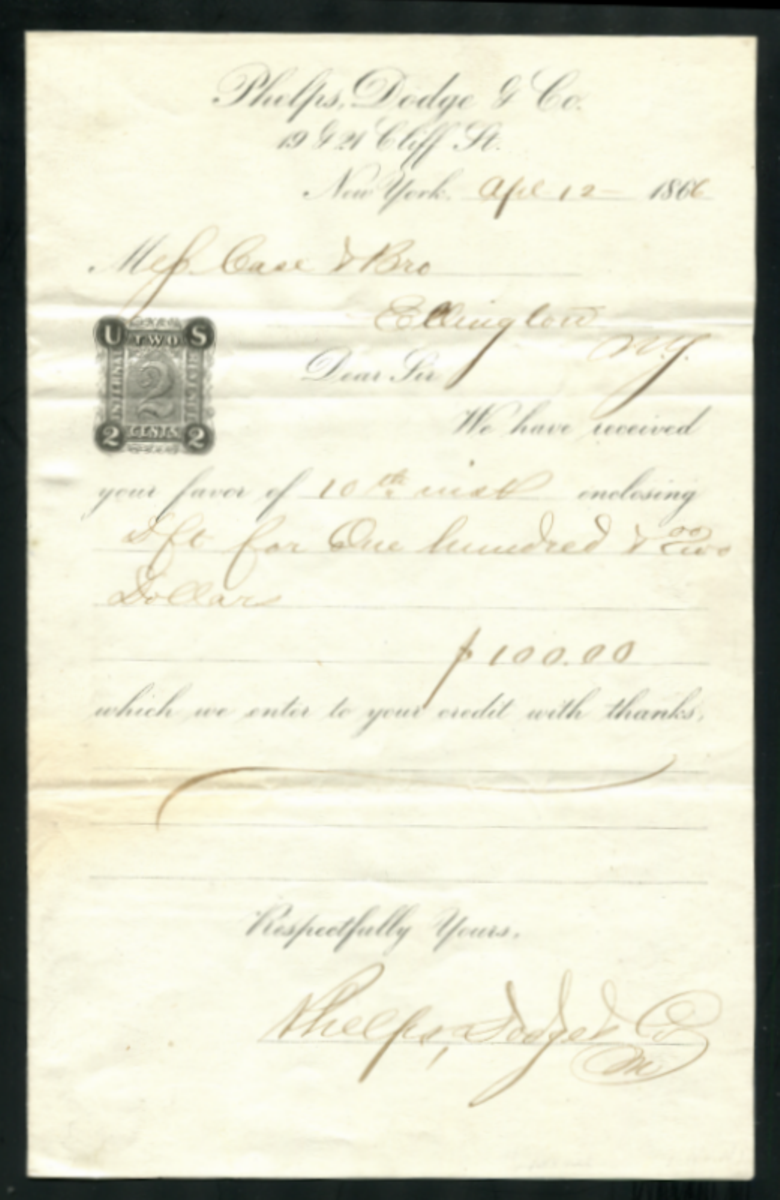 Phelps, Dodge & Co.
19 & 21 Cliff St.
New York, Apl 12 1866
Mess. Case & Bro
Ellington
NY.
U S
TWO
INTERNAL
2
CENTS
2 2
Dear Sir
We have received
your favor of 10th inst enclosing
dft for One hundred & 00/100
Dollars
$100.00
which we enter to your credit with thanks,
Respectfully Yours,
Phelps, Dodge & Co